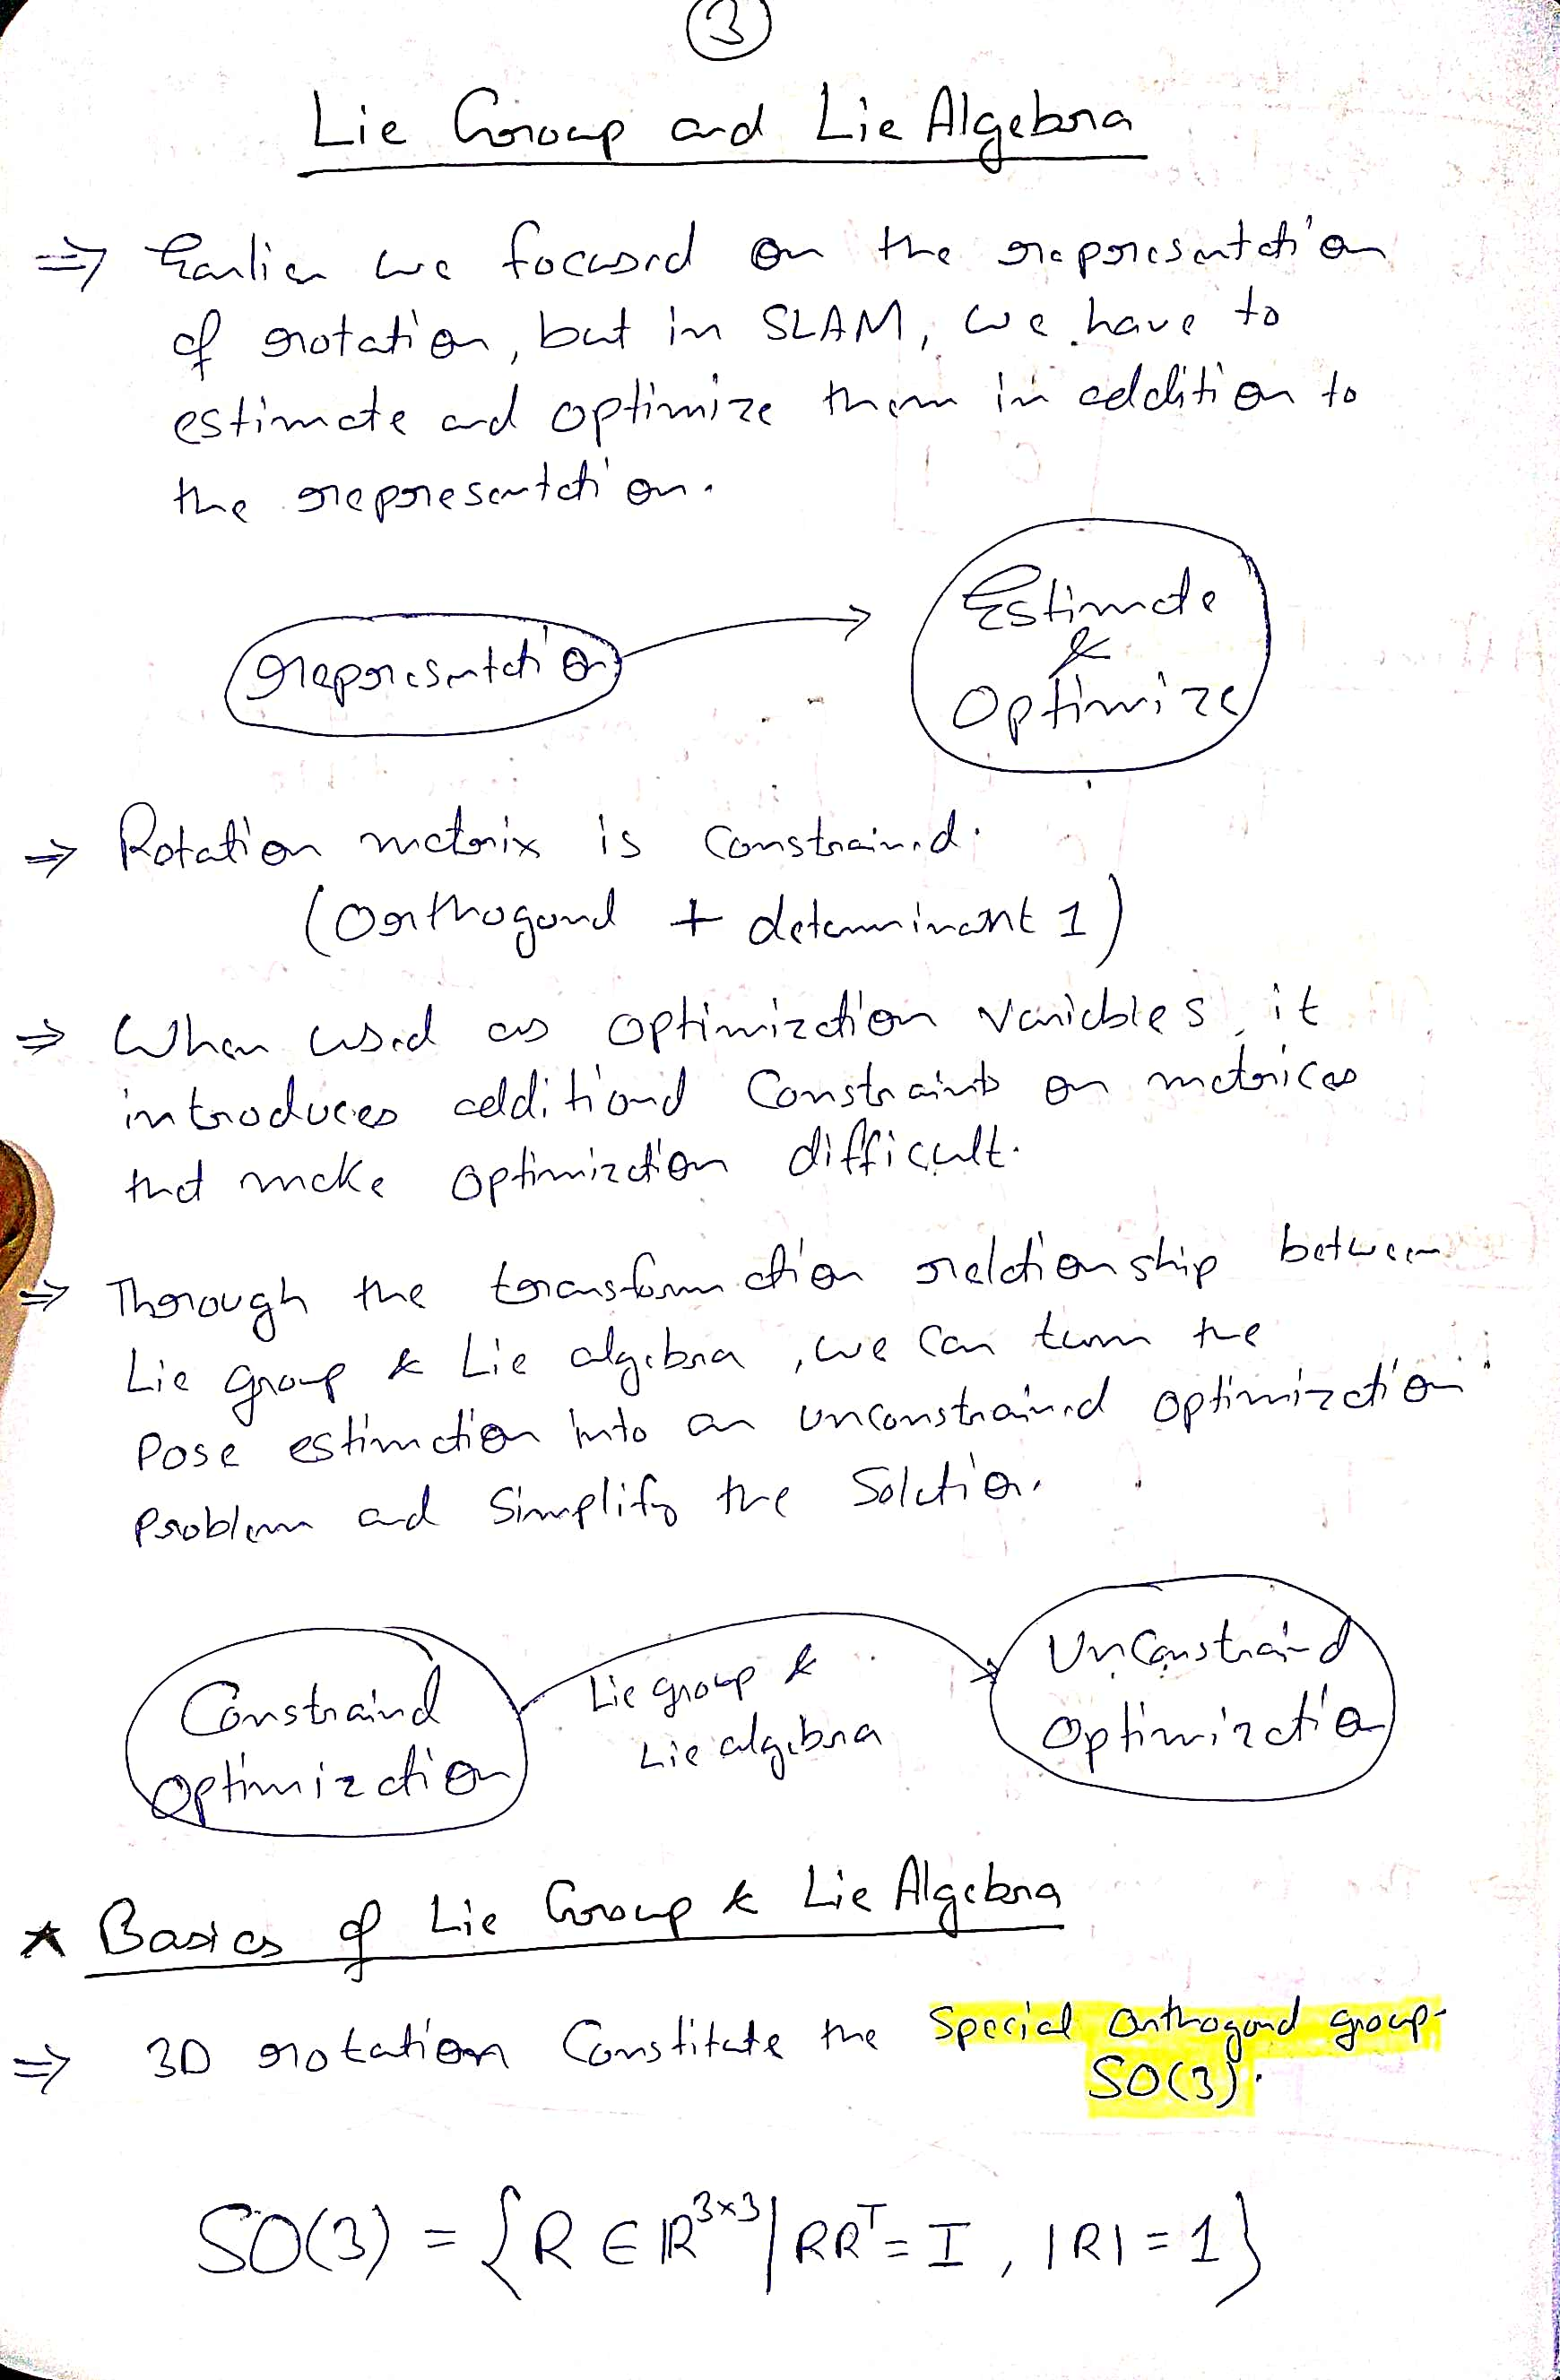 3
Lie Group and Lie Algebra
⇒ Earlier we focused on the representation
of rotation, but in SLAM, we have to
estimate and optimize them in addition to
the representation.
representation → Estimate
&
Optimize
⇒ Rotation matrix is constrained.
(Orthogonal + determinant 1)
⇒ When used as optimization variables, it
introduces additional constraints on matrices
that make optimization difficult.
⇒ Through the transformation relationship between
Lie group & Lie algebra, we can turn the
pose estimation into an unconstrained optimization
problem and simplify the solution.
Constrained
optimization
Lie group &
Lie algebra
Unconstrained
Optimization
* Basics of Lie Group & Lie Algebra
⇒ 3D rotation constitute the Special Orthogonal group
SO(3).
SO(3) = {R ∈ ℝ³ˣ³ | RRᵀ = I, |R| = 1}